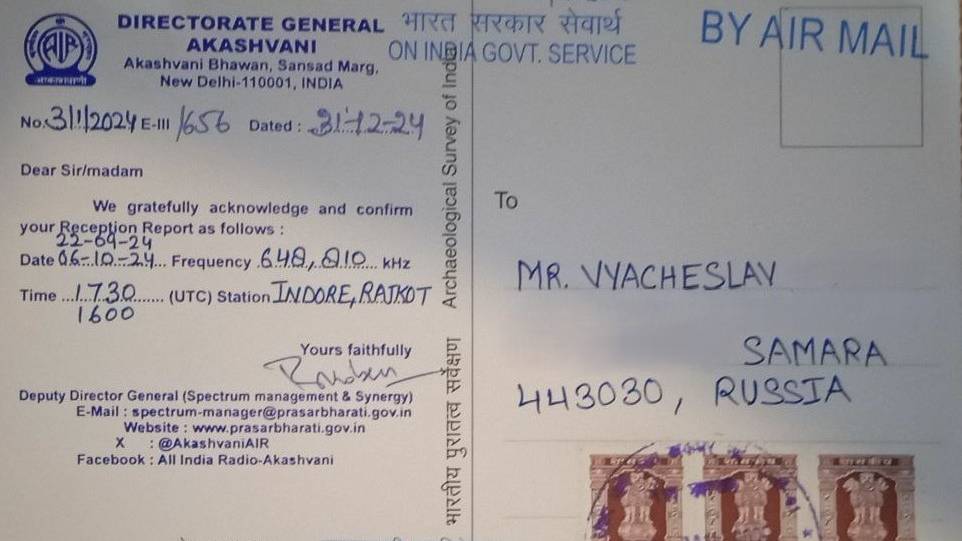 DIRECTORATE GENERAL
AKASHVANI
Akashvani Bhawan, Sansad Marg,
New Delhi-110001, INDIA
AIR
आकाशवाणी
No. 3/1/2024 E-III /656 Dated : 31-12-24
Dear Sir/madam
We gratefully acknowledge and confirm
your Reception Report as follows :
22-09-24
Date 06-10-24 Frequency 648, 810 kHz
Time ...1730....... (UTC) Station INDORE, RAJKOT
1600
Yours faithfully
Deputy Director General (Spectrum management & Synergy)
E-Mail : spectrum-manager@prasarbharati.gov.in
Website : www.prasarbharati.gov.in
X : @AkashvaniAIR
Facebook : All India Radio-Akashvani
भारतीय पुरातत्व सर्वेक्षण Archaeological Survey of India
भारत सरकार सेवार्थ
ON INDIA GOVT. SERVICE
BY AIR MAIL
To
MR. VYACHESLAV
SAMARA
443030, RUSSIA